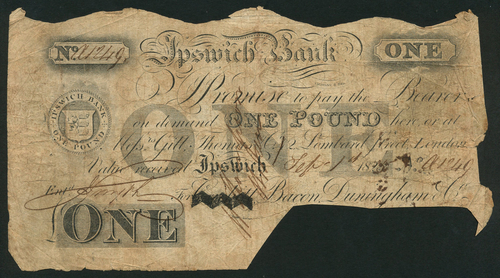 No. A1249 Ipswich Bank ONE
I Promise to pay the Bearer
on demand ONE POUND here or at
Messrs. Gill, Thomas & Co. 2 Lombard Street, London
Value received Ipswich Sept. 1st 18 A1249
IPSWICH BANK
ONE POUND
Entd.
For Bacon, Dunningham & Co.
ONE